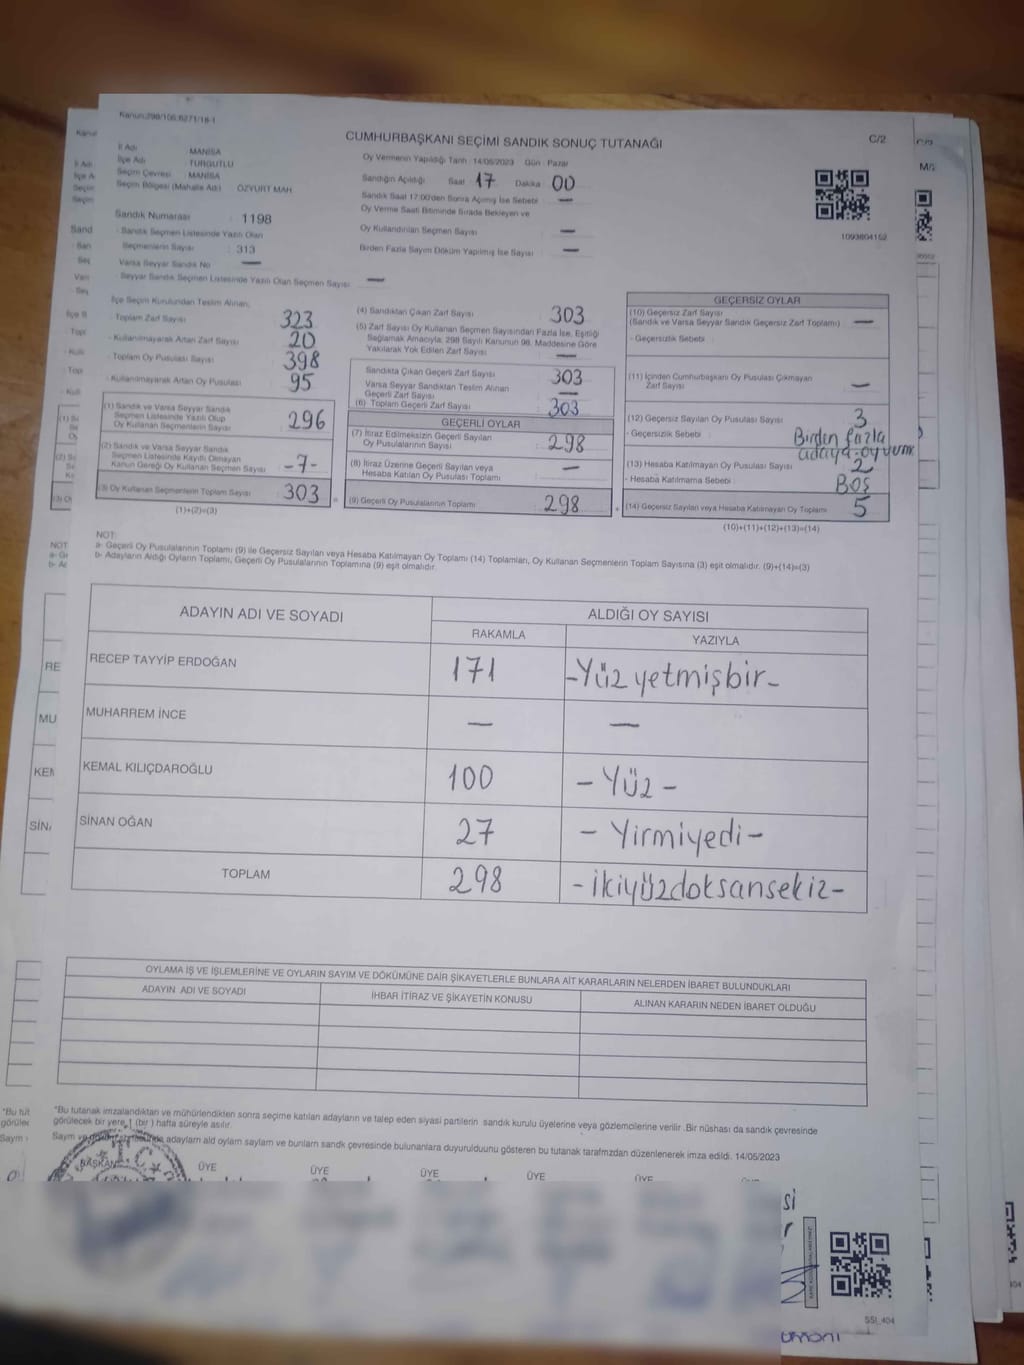 Kanun:298/106,6271/18-1
CUMHURBAŞKANI SEÇİMİ SANDIK SONUÇ TUTANAĞI
C/2
İl Adı MANİSA
İlçe Adı : TURGUTLU
Seçim Çevresi : MANİSA
Seçim Bölgesi (Mahalle Adı) : ÖZYURT MAH
Oy Vermenin Yapıldığı Tarih : 14/05/2023 Gün : Pazar
Sandığın Açıldığı Saat 17 Dakika 00
Sandık Saat 17:00'den Sonra Açılmış İse Sebebi —
Oy Verme Saati Bitiminde Sırada Bekleyen ve
Oy Kullandırılan Seçmen Sayısı —
Birden Fazla Sayım Döküm Yapılmış İse Sayısı —
1093804152
Sandık Numarası : 1198
- Sandık Seçmen Listesinde Yazılı Olan
Seçmenlerin Sayısı : 313
Varsa Seyyar Sandık No —
- Seyyar Sandık Seçmen Listesinde Yazılı Olan Seçmen Sayısı —
İlçe Seçim Kurulundan Teslim Alınan;
- Toplam Zarf Sayısı 323
- Kullanılmayarak Artan Zarf Sayısı 20
- Toplam Oy Pusulası Sayısı 398
- Kullanılmayarak Artan Oy Pusulası 95
(1) Sandık ve Varsa Seyyar Sandık
Seçmen Listesinde Yazılı Olup
Oy Kullanan Seçmenlerin Sayısı 296
(2) Sandık ve Varsa Seyyar Sandık
Seçmen Listesinde Kayıtlı Olmayan
Kanun Gereği Oy Kullanan Seçmen Sayısı -7-
(3) Oy Kullanan Seçmenlerin Toplam Sayısı 303
(1)+(2)=(3)
(4) Sandıktan Çıkan Zarf Sayısı 303
(5) Zarf Sayısı Oy Kullanan Seçmen Sayısından Fazla İse, Eşitliği
Sağlamak Amacıyla, 298 Sayılı Kanunun 98. Maddesine Göre
Yakılarak Yok Edilen Zarf Sayısı —
Sandıkta Çıkan Geçerli Zarf Sayısı 303
Varsa Seyyar Sandıktan Teslim Alınan
Geçerli Zarf Sayısı —
(6) Toplam Geçerli Zarf Sayısı 303
GEÇERLİ OYLAR
(7) İtiraz Edilmeksizin Geçerli Sayılan
Oy Pusulalarının Sayısı 298
(8) İtiraz Üzerine Geçerli Sayılan veya
Hesaba Katılan Oy Pusulası Toplamı —
(9) Geçerli Oy Pusulalarının Toplamı 298
GEÇERSİZ OYLAR
(10) Geçersiz Zarf Sayısı
(Sandık ve Varsa Seyyar Sandık Geçersiz Zarf Toplamı) —
- Geçersizlik Sebebi :
(11) İçinden Cumhurbaşkanı Oy Pusulası Çıkmayan
Zarf Sayısı —
(12) Geçersiz Sayılan Oy Pusulası Sayısı 3
- Geçersizlik Sebebi : Birden fazla
adaya oy
(13) Hesaba Katılmayan Oy Pusulası Sayısı 2
- Hesaba Katılmama Sebebi : BOŞ
(14) Geçersiz Sayılan veya Hesaba Katılmayan Oy Toplamı 5
(10)+(11)+(12)+(13)=(14)
NOT:
a- Geçerli Oy Pusulalarının Toplamı (9) ile Geçersiz Sayılan veya Hesaba Katılmayan Oy Toplamı (14) Toplamları, Oy Kullanan Seçmenlerin Toplam Sayısına (3) eşit olmalıdır. (9)+(14)=(3)
b- Adayların Aldığı Oyların Toplamı, Geçerli Oy Pusulalarının Toplamına (9) eşit olmalıdır.
ADAYIN ADI VE SOYADI ALDIĞI OY SAYISI
RAKAMLA YAZIYLA
RECEP TAYYİP ERDOĞAN 171 -Yüz yetmişbir-
MUHARREM İNCE — —
KEMAL KILIÇDAROĞLU 100 -Yüz-
SİNAN OĞAN 27 -Yirmiyedi-
TOPLAM 298 -ikiyüzdoksansekiz-
OYLAMA İŞ VE İŞLEMLERİNE VE OYLARIN SAYIM VE DÖKÜMÜNE DAİR ŞİKAYETLERLE BUNLARA AİT KARARLARIN NELERDEN İBARET BULUNDUKLARI
ADAYIN ADI VE SOYADI İHBAR İTİRAZ VE ŞİKAYETİN KONUSU ALINAN KARARIN NEDEN İBARET OLDUĞU
*Bu tutanak imzalandıktan ve mühürlendikten sonra seçime katılan adayların ve talep eden siyasi partilerin sandık kurulu üyelerine veya gözlemcilerine verilir .Bir nüshası da sandık çevresinde
görülecek bir yere 1 (bir ) hafta süreyle asılır.
adayların ald oyların sayların ve bunların sandk çevresinde bulunanlara duyurulduunu gösteren bu tutanak tarafmzdan düzenlenerek imza edildi. 14/05/2023
BAŞKAN ÜYE ÜYE ÜYE ÜYE ÜYE
T.C.
SSİ_404